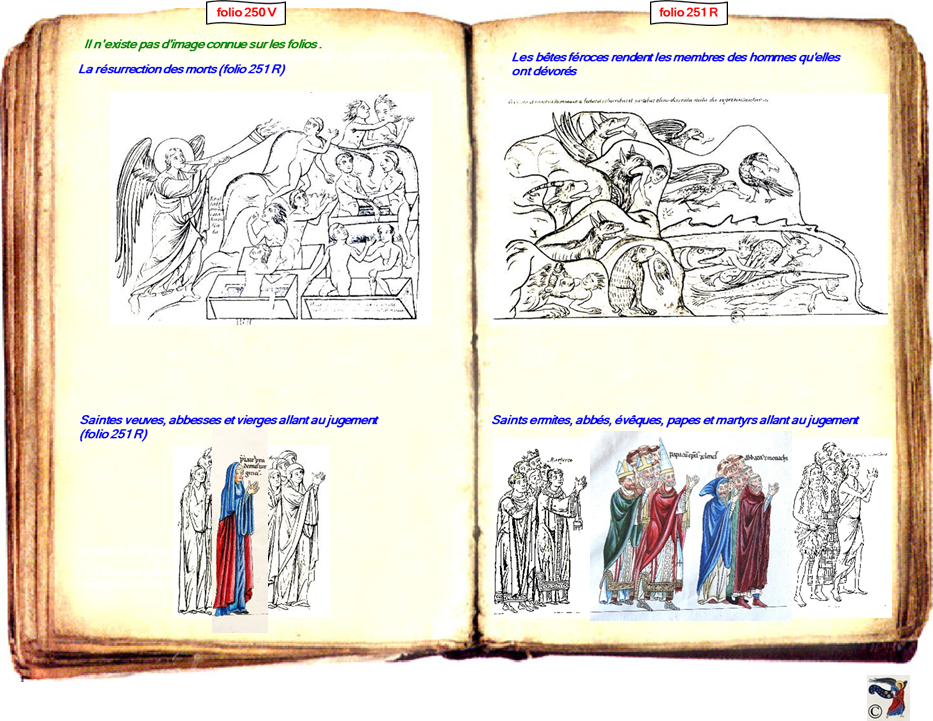 folio 250 V
Il n'existe pas d'image connue sur les folios .
La résurrection des morts (folio 251 R)
Saintes veuves, abbesses et vierges allant au jugement
(folio 251 R)
folio 251 R
Les bêtes féroces rendent les membres des hommes qu'elles
ont dévorés
Saints ermites, abbés, évêques, papes et martyrs allant au jugement
©